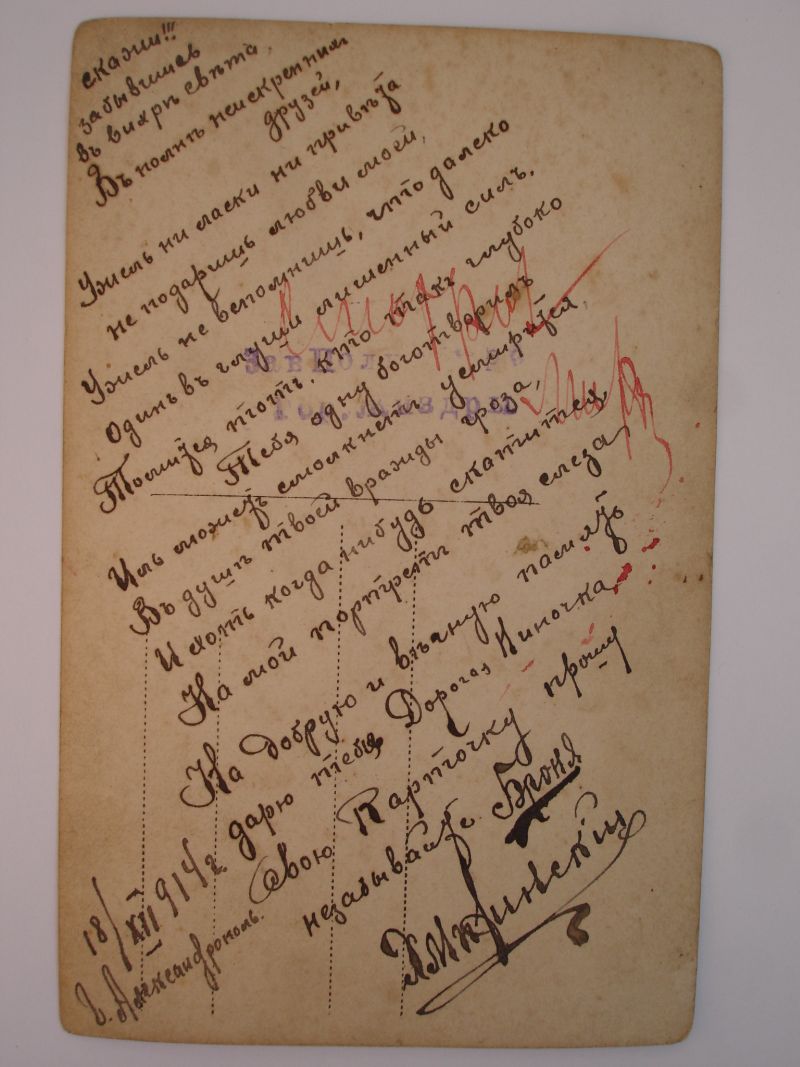 скажи!!!
забывшись
въ вихрѣ свѣта,
Въ толпѣ неискреннихъ
друзей,
Ужель ни ласки ни привѣта
не подаришь любви моей,
Ужель не вспомнишь, что далеко
Одинъ въ глуши лишенный силъ.
Томится тотъ, кто такъ глубоко
Тебя одну боготворилъ
Иль можетъ смолкнетъ усмирится
Въ душѣ твоей вражды гроза,
И хоть когда нибудь скатится
На мой портретъ твоя слеза
На добрую и вѣчную память
дарю тебѣ Дорогая Ниночка
Свою Карточку прошу
незабывайте Броня
18/XII 914 г
г. Александрополь.
Зав
Гор.